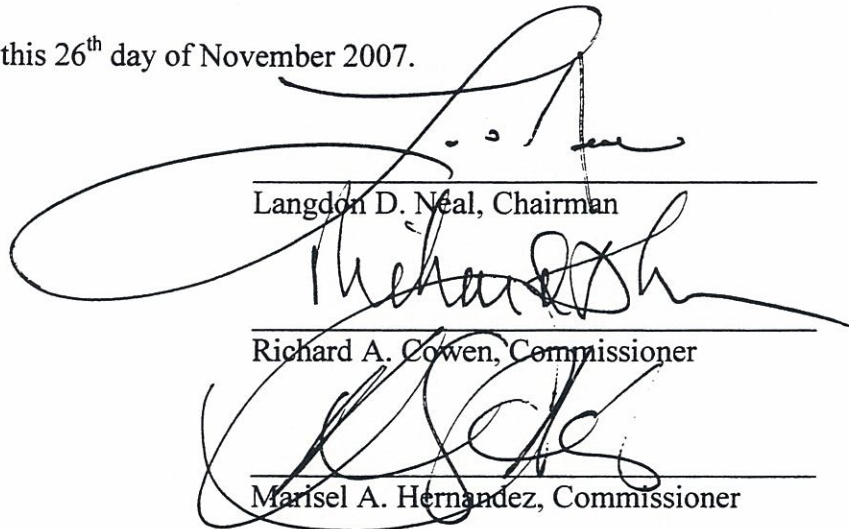 this 26th day of November 2007.
Langdon D. Neal, Chairman
Richard A. Cowen, Commissioner
Marisel A. Hernandez, Commissioner